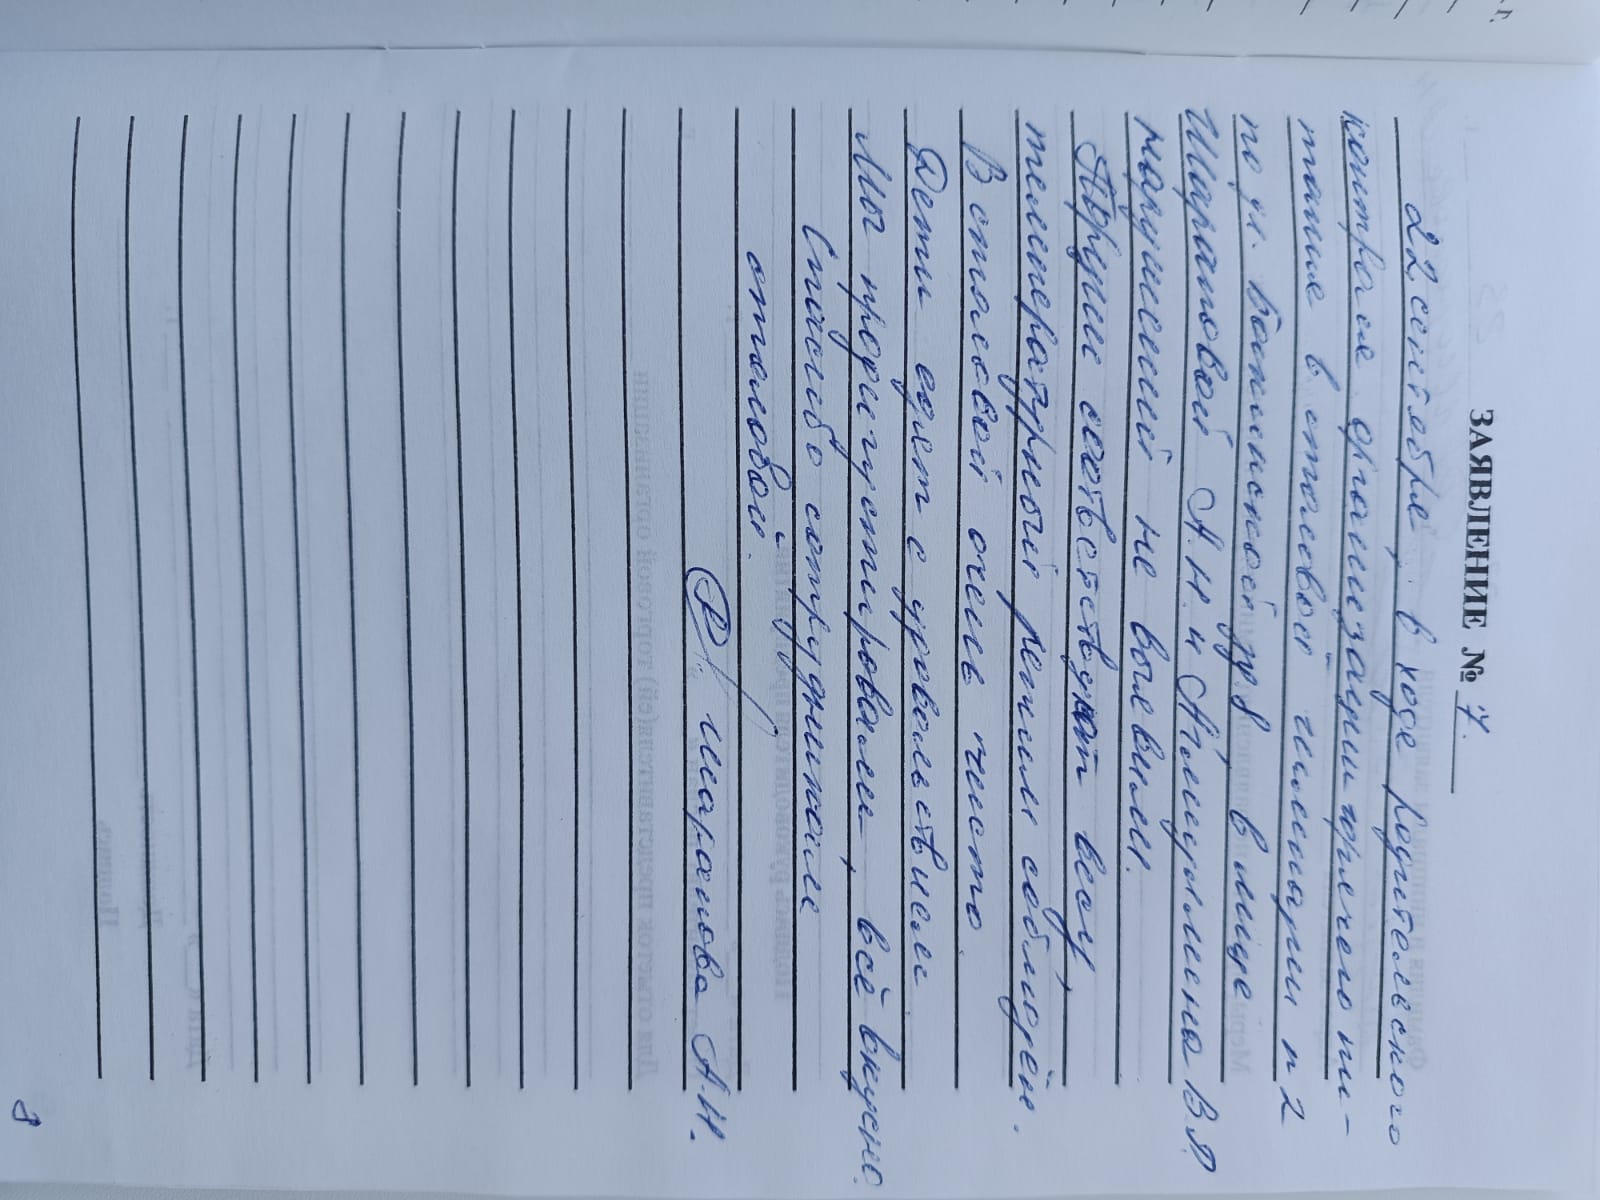 ЗАЯВЛЕНИЕ № 7.
22 сентября, в ходе родительского
контроля организации горячего пи-
тания в столовой гимназии п 2
по ул. Волынской, 8 в лице
Шараповой А.Н. и
нарушений не выявили.
Порции соответствуют весу,
температурный режим соблюдён.
В столовой очень чисто.
Дети едят с удовольствием
Мы продегустировали, всё вкусно.
Спасибо сотрудникам
столовой.
Шарапова А.Н.
8